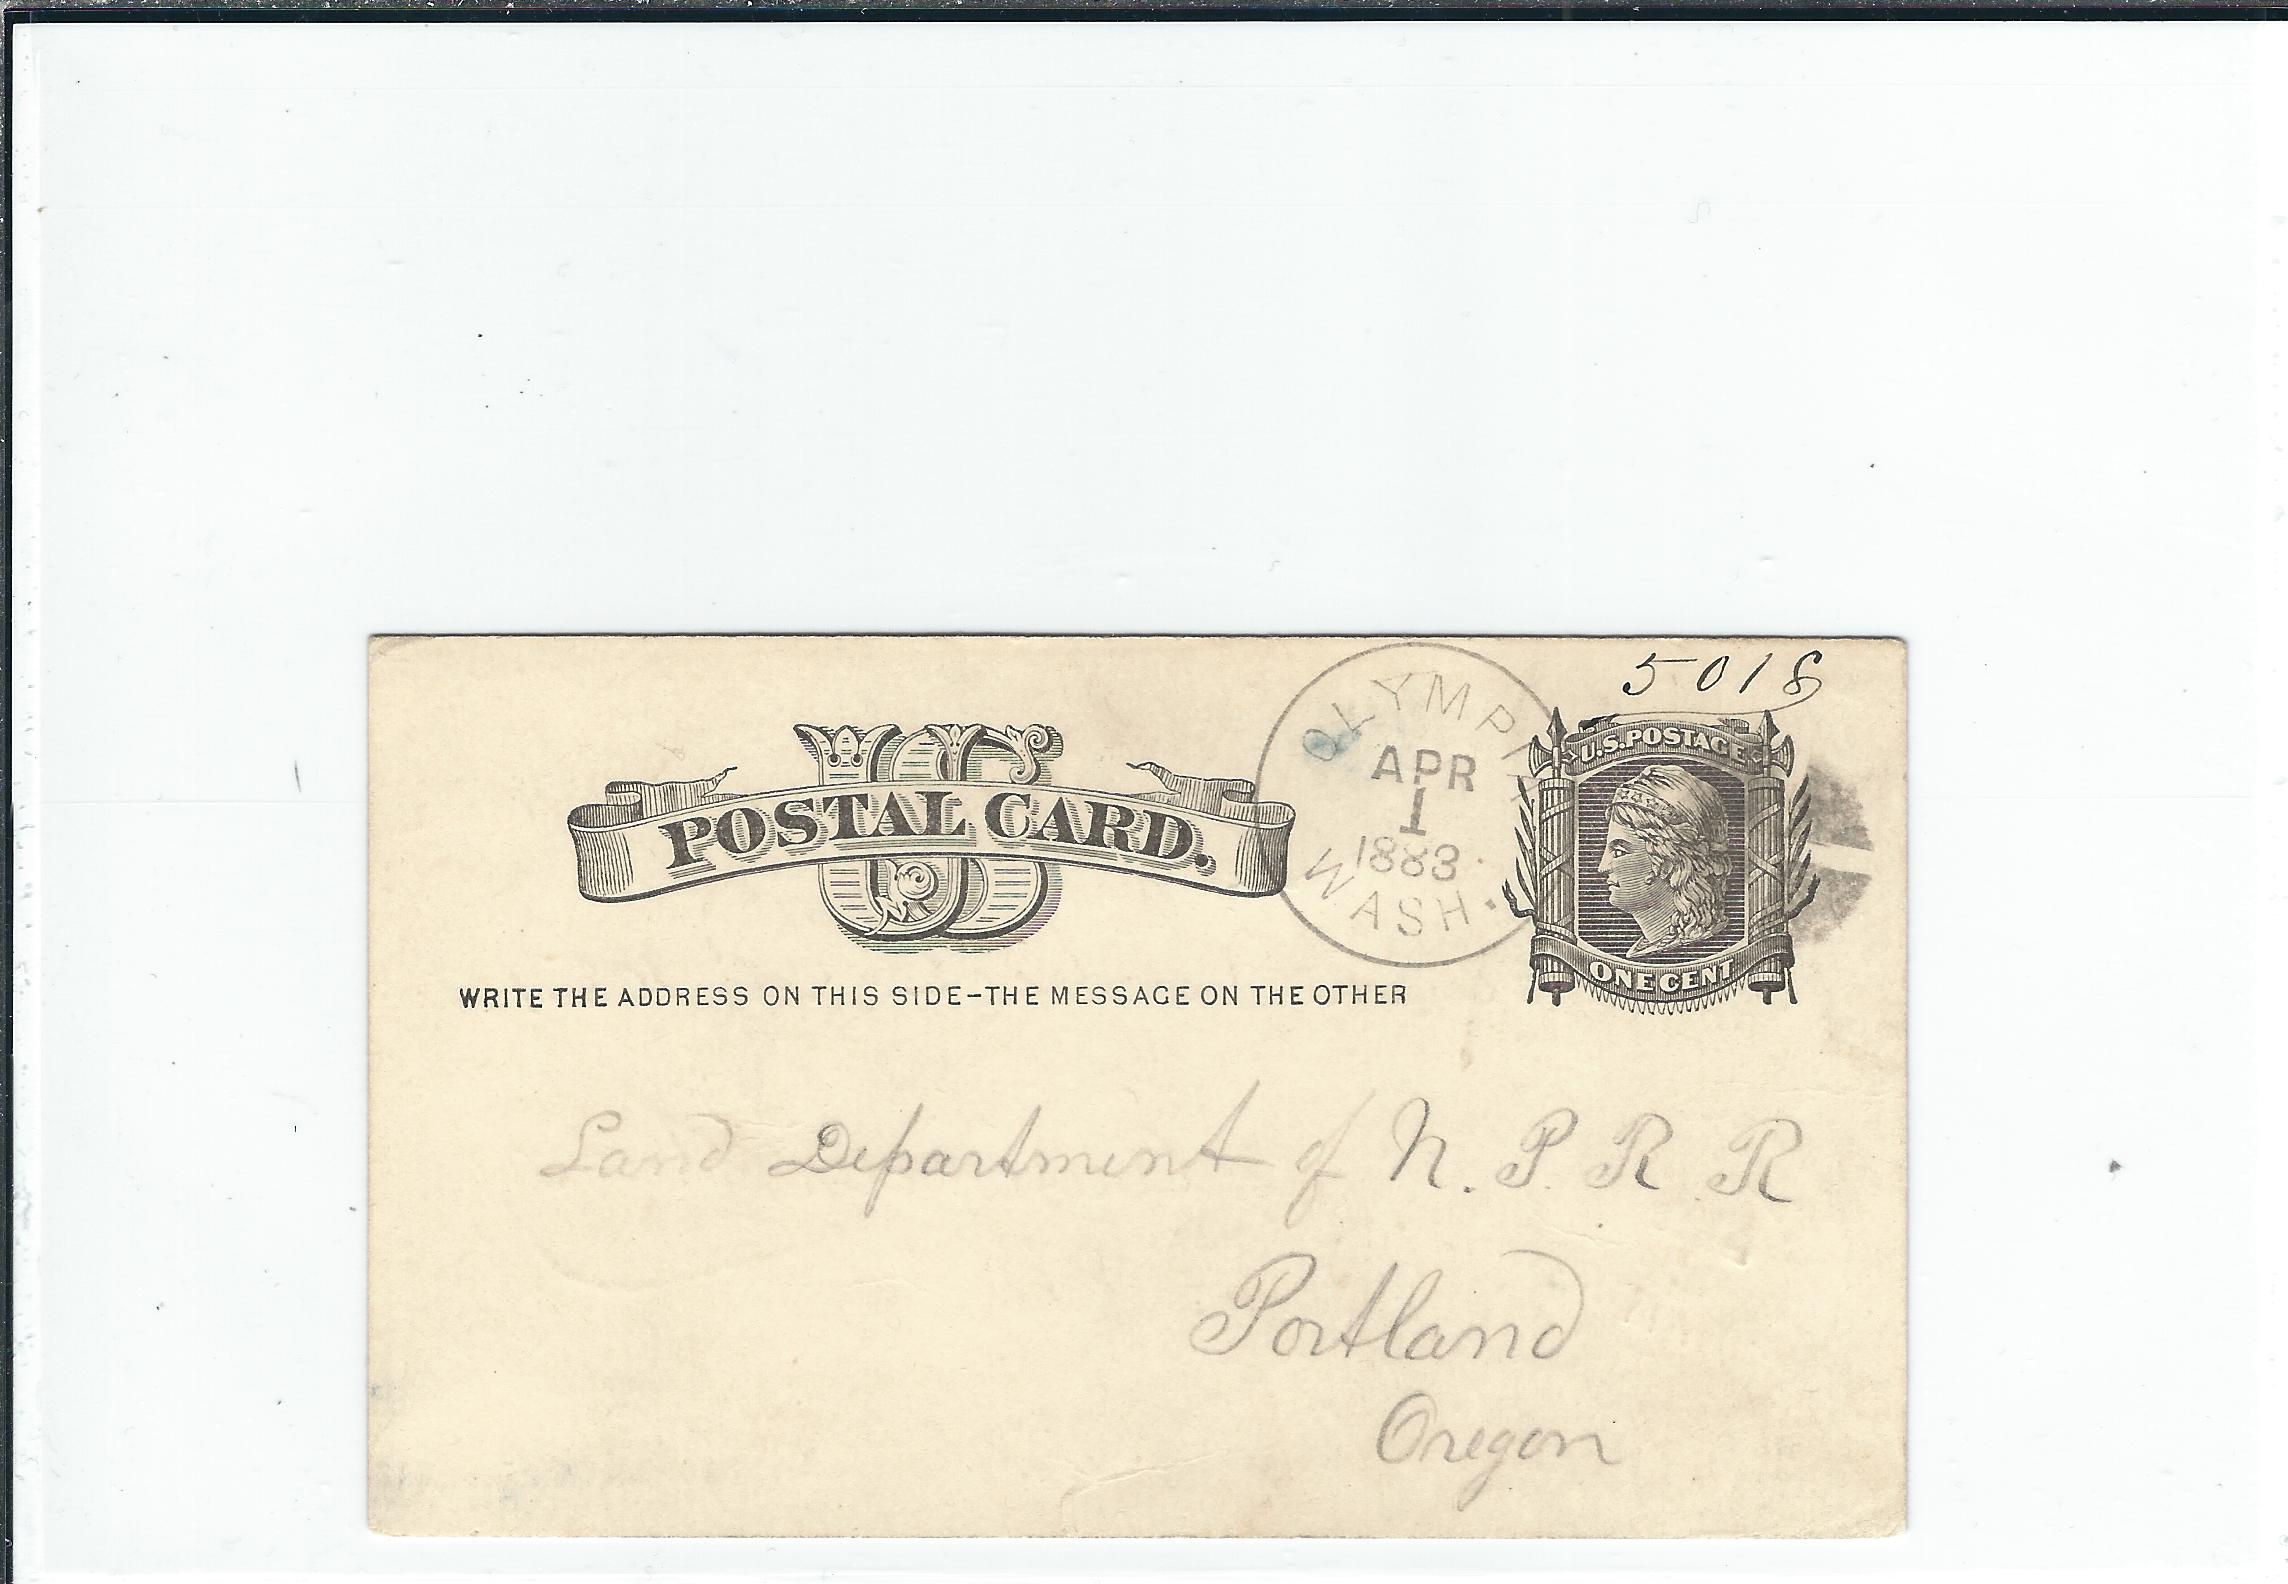 5018
US
POSTAL CARD.
OLYMPIA
APR
1
1883
WASH.
U.S. POSTAGE
ONE CENT
WRITE THE ADDRESS ON THIS SIDE–THE MESSAGE ON THE OTHER
Land Department of N. P. R. R
Portland
Oregon